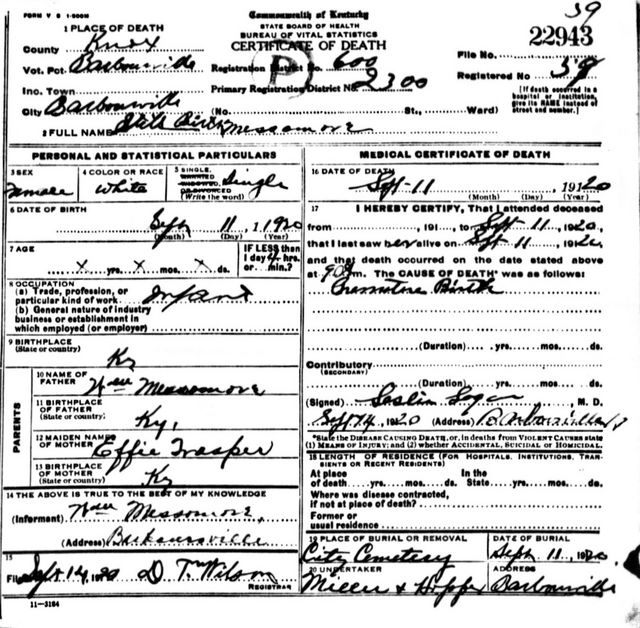 FORM V S 1-500M
Commonwealth of Kentucky
STATE BOARD OF HEALTH
BUREAU OF VITAL STATISTICS
CERTIFICATE OF DEATH
39
File No. 22943
Registered No 39
[If death occurred in a hospital or institution, give its NAME instead of street and number.]
1 PLACE OF DEATH
County Knox
Vot. Pct Barbourville
Registration District No. 600
Inc. Town
Primary Registration District No. 2300
City Barbourville (No. St., Ward)
2 FULL NAME Still Birth Messamore
PERSONAL AND STATISTICAL PARTICULARS
3 SEX
Female
4 COLOR OR RACE
White
5 SINGLE, MARRIED WIDOWED, OR DIVORCED (Write the word) Single
6 DATE OF BIRTH
Sept 11, 1920
(Month) (Day) (Year)
7 AGE
x yrs. x mos. x ds.
IF LESS than 1 day hrs. or min.?
8 OCCUPATION
(a) Trade, profession, or particular kind of work Infant
(b) General nature of industry business or establishment in which employed (or employer)
9 BIRTHPLACE
(State or country) Ky
PARENTS
10 NAME OF FATHER Messamore
11 BIRTHPLACE OF FATHER (State or country) Ky,
12 MAIDEN NAME OF MOTHER Effie
13 BIRTHPLACE OF MOTHER (State or country) Ky
14 THE ABOVE IS TRUE TO THE BEST OF MY KNOWLEDGE
(Informant) Messamore,
(Address)
15
Filed Sept 14 1920 D T Wilson
REGISTRAR
11-3184
MEDICAL CERTIFICATE OF DEATH
16 DATE OF DEATH
Sept-11 1920
(Month) (Day) (Year)
17 I HEREBY CERTIFY, That I attended deceased
from , 191 , to Sept-11, 1920,
that I last saw her alive on Sept-11, 1920
and that death occurred on the date stated above
at m. The CAUSE OF DEATH* was as follows:
Premature Birth
(Duration) yrs. mos. ds.
Contributory
(SECONDARY)
(Duration) yrs. mos. ds.
(Signed) Logan, M. D.
Sept 14, 1920 (Address) Barbourville
*State the DISEASE CAUSING DEATH, or, in deaths from VIOLENT CAUSES state (1) MEANS OF INJURY; and (2) whether ACCIDENTAL, SUICIDAL or HOMICIDAL.
18 LENGTH OF RESIDENCE (FOR HOSPITALS, INSTITUTIONS, TRANSIENTS OR RECENT RESIDENTS)
At place of death yrs. mos. ds.
In the State yrs. mos. ds.
Where was disease contracted, if not at place of death?
Former or usual residence
19 PLACE OF BURIAL OR REMOVAL
City Cemetery
DATE OF BURIAL
Sept 11 1920
20 UNDERTAKER
Miller & Hopper
ADDRESS
Barbourville